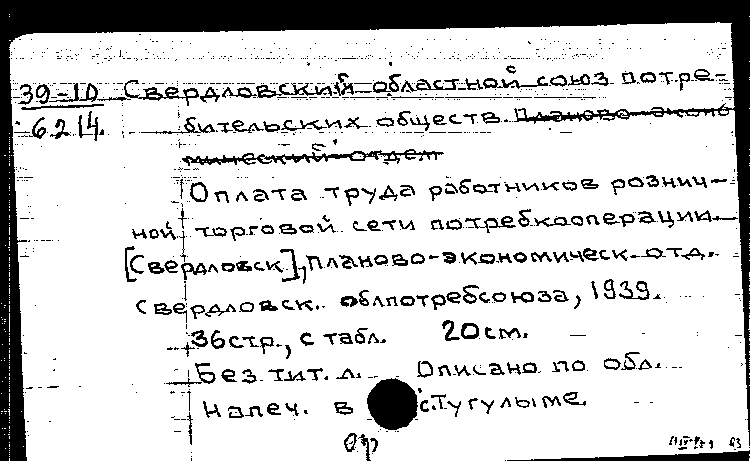 39-10 Свердловский областной союз потре-
6214. бительских обществ. Планово-эконо
мический отдел
Оплата труда работников рознич-
ной торговой сети потребкооперации.
[Свердловск], Планово-экономическ. отд.
Свердловск. облпотребсоюза, 1939.
36 стр., с табл. 20 см.
Без тит. л. Описано по обл.
Напеч. в с. Тугулыме.